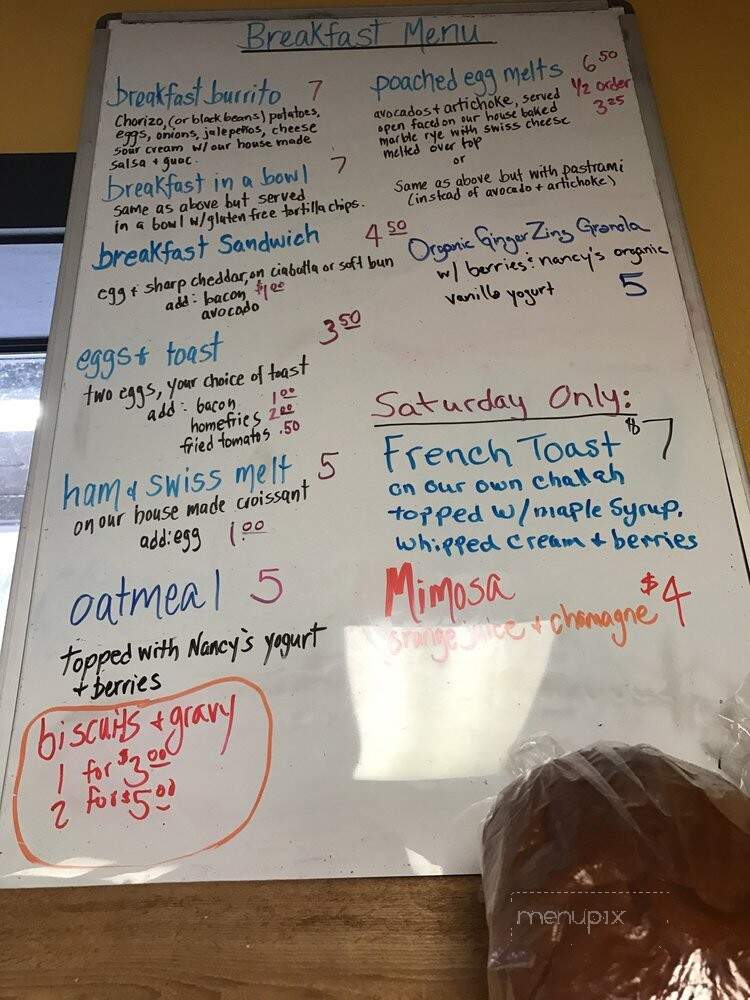 Breakfast Menu
breakfast burrito 7
Chorizo, (or black beans) potatoes,
eggs, onions, jalepeños, cheese
sour cream w/our house made
salsa + guac.
breakfast in a bowl 7
same as above but served
in a bowl w/gluten free tortilla chips.
breakfast Sandwich 4 50
egg + sharp cheddar, on ciabatta or soft bun
add: bacon $1 00
avocado
eggs + toast 3 50
two eggs, your choice of toast
add: bacon 1 00
homefries 2 00
fried tomatos .50
ham + swiss melt 5
on our house made croissant
add: egg 1.00
oatmeal 5
topped with Nancy's yogurt
+ berries
biscuits + gravy
1 for $3 00
2 for $5 00
poached egg melts 6 50
1/2 order
3 25
avocados + artichoke, served
open faced on our house baked
marble rye with swiss cheese
melted over top
or
Same as above but with pastrami
(instead of avocado + artichoke)
Organic Ginger Zing Granola
w/ berries + nancy's organic
vanilla yogurt 5
Saturday Only:
French Toast $7
on our own challah
topped w/maple Syrup,
whipped cream + berries
Mimosa $4
orange juice + chamagne
menupix